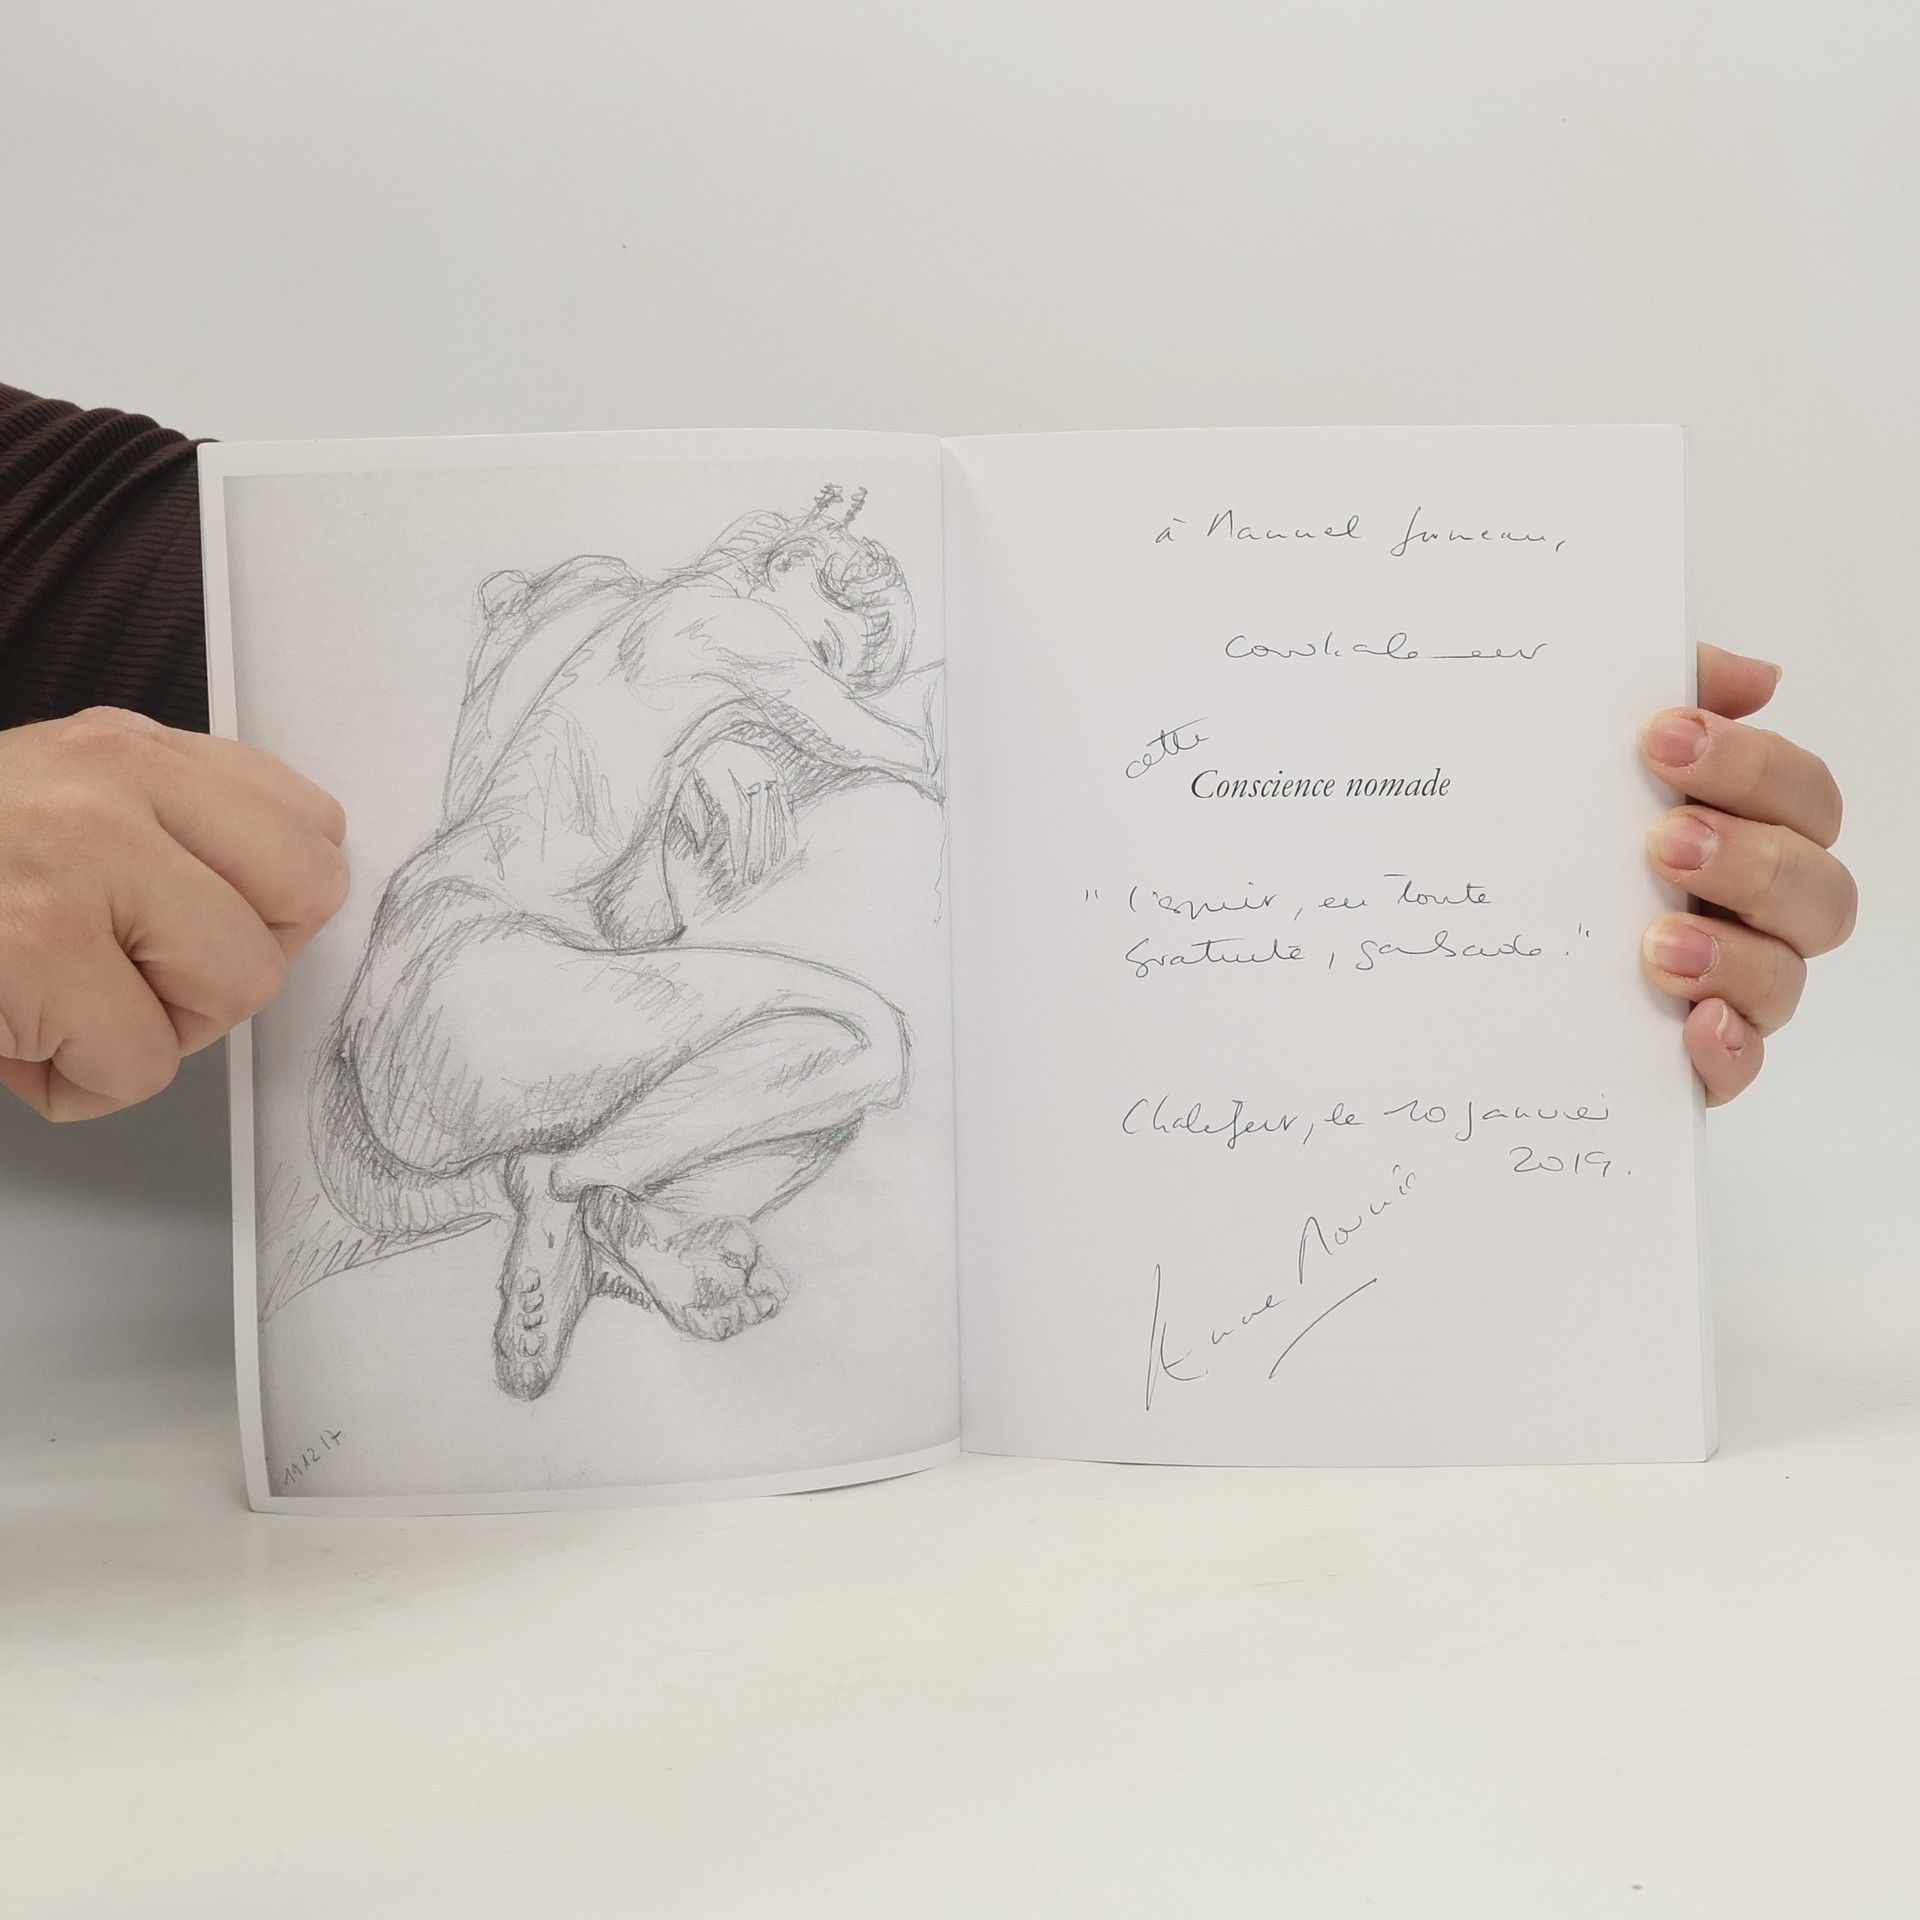 19 12 17
à Manuel Juneau,
cordialement
cette
Conscience nomade
" L'espoir, en toute
gratuité, gambade. "
le 20 janvier
2019.
Anne